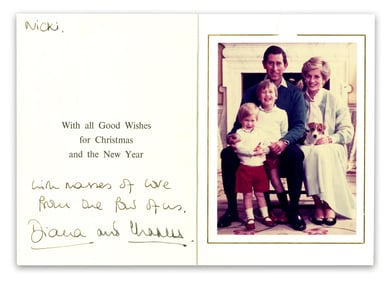 Nicki.
With all Good Wishes
for Christmas
and the New Year
with masses of love
from the four of us.
Diana and Charles.